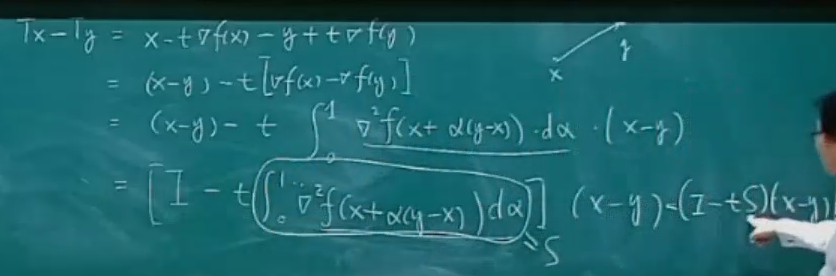 Tx-Ty = x-t∇f(x)-y+t∇f(y)
= (x-y)-t[∇f(x)-∇f(y)]
= (x-y)-t ∫₀¹ ∇²f(x+α(y-x))·dα·(x-y)
= [I-t(∫₀¹ ∇²f(x+α(y-x))dα)](x-y)=(I-tS)(x-y)
=S
x
y